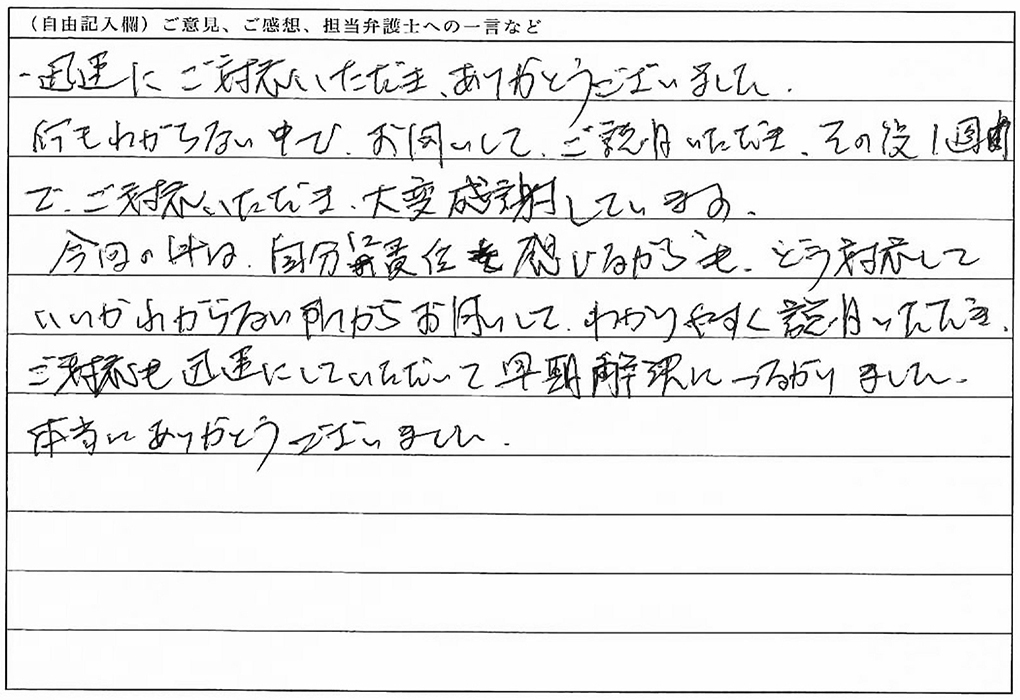 (自由記入欄)ご意見、ご感想、担当弁護士への一言など
迅速にご対応いただき、ありがとうございました.
何もわからない中で、お伺いして、ご説明いただき、その後1週間
で、ご対応いただき、大変感謝しています。
今回の件は、自分に責任を感じながらも、どう対応して
いいかわからない所からお伺いして、わかりやすく説明いただき、
ご対応も迅速にしていただいて早期解決につながりました.
本当にありがとうございました.